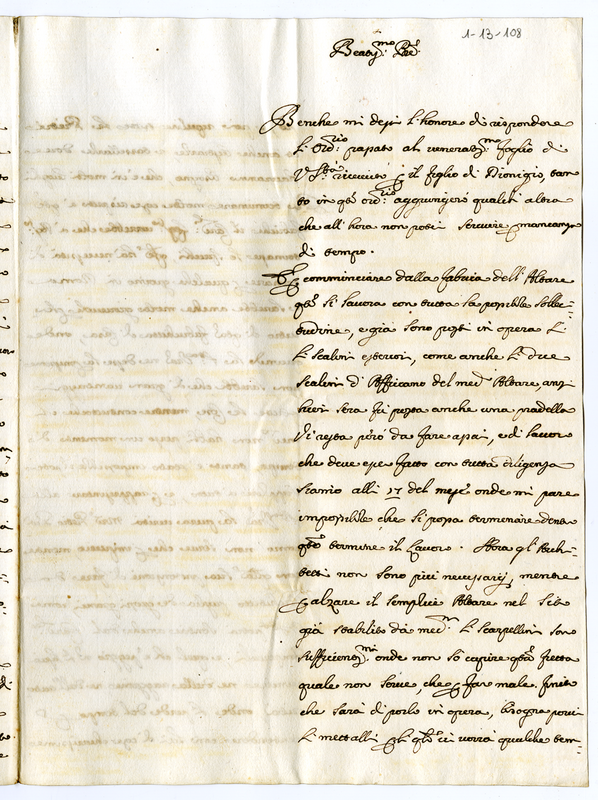 1-13-108
Beatis.mo P̄re
Benche mi desi l'honore di rispondere
l'Ord.rio papato al veneratis.mo foglio di
V. S.tà ricevuto p il figlio di Dionigio, tan
to in q.to ord.rio aggiungerò qualch'altra
che all'hora non potei scrivere p mancanza
di tempo.
P comminciare dalla fabrica dell'Altare
q.to si lavora con tutta la possibile solle-
citudine, e già sono posti in opera li
li scalini esteriori, come anche li due
scalini d'Affricano del med. Altare, an
hieri sera fù posta anche una pradella
Vi resta però da fare assai, e di lavoro
che deve esse fatto con tutta diligenza
siamo alli 17 del mese onde mi pare
impossibile che si possa terminare dentro
q.to termine il lavoro. Hora gl'Archi-
tetti non sono più necessarij, mentre
p alzare il semplice Altare nel sito
già stabilito da med.m li scarpellini sono
sufficientis.mi, onde non sò capire q.ta fretta
quale non serve, che p far male. finito
che sarà di porlo in opera, bisogna porvi
li mettalli p li q.li ci vorrà qualche tem-